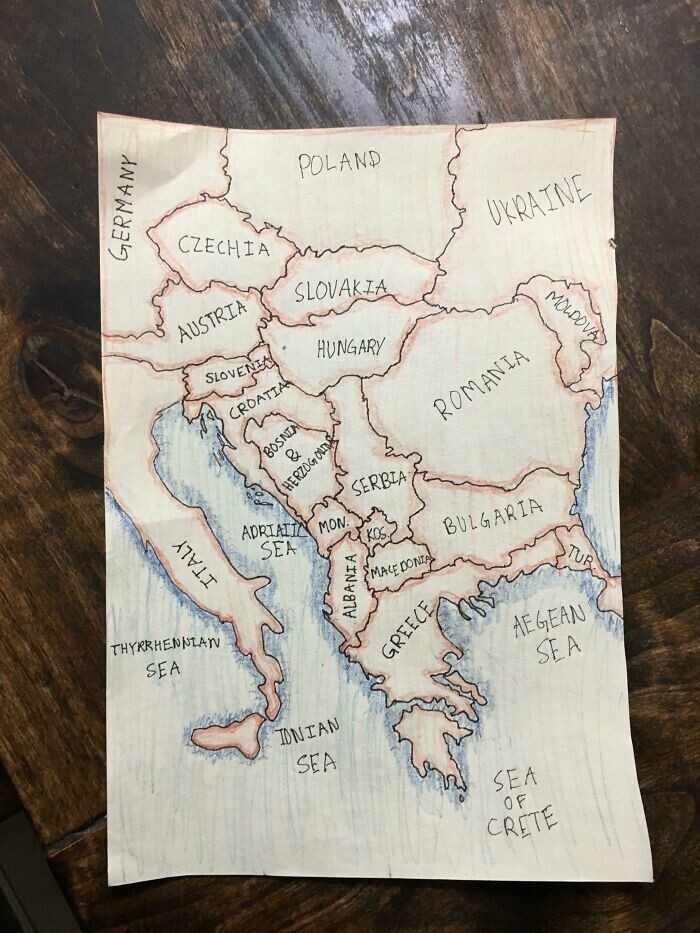 GERMANY
POLAND
UKRAINE
CZECHIA
SLOVAKIA
MOLDOVA
AUSTRIA
HUNGARY
ROMANIA
SLOVENIA
CROATIA
BOSNIA
&
HERZOGOVINA
SERBIA
ADRIATIC
SEA
MON.
KOS.
BULGARIA
ITALY
ALBANIA
MACEDONIA
TUR.
GREECE
AEGEAN
SEA
THYRRHENNIAN
SEA
IONIAN
SEA
SEA
OF
CRETE